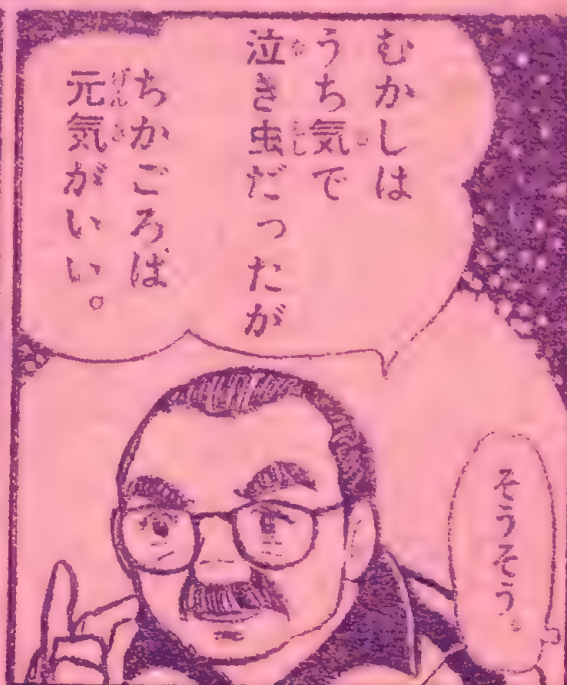 むかしは
うち気で
泣き虫だったが
ちかごろは
元気がいい。
そうそう。